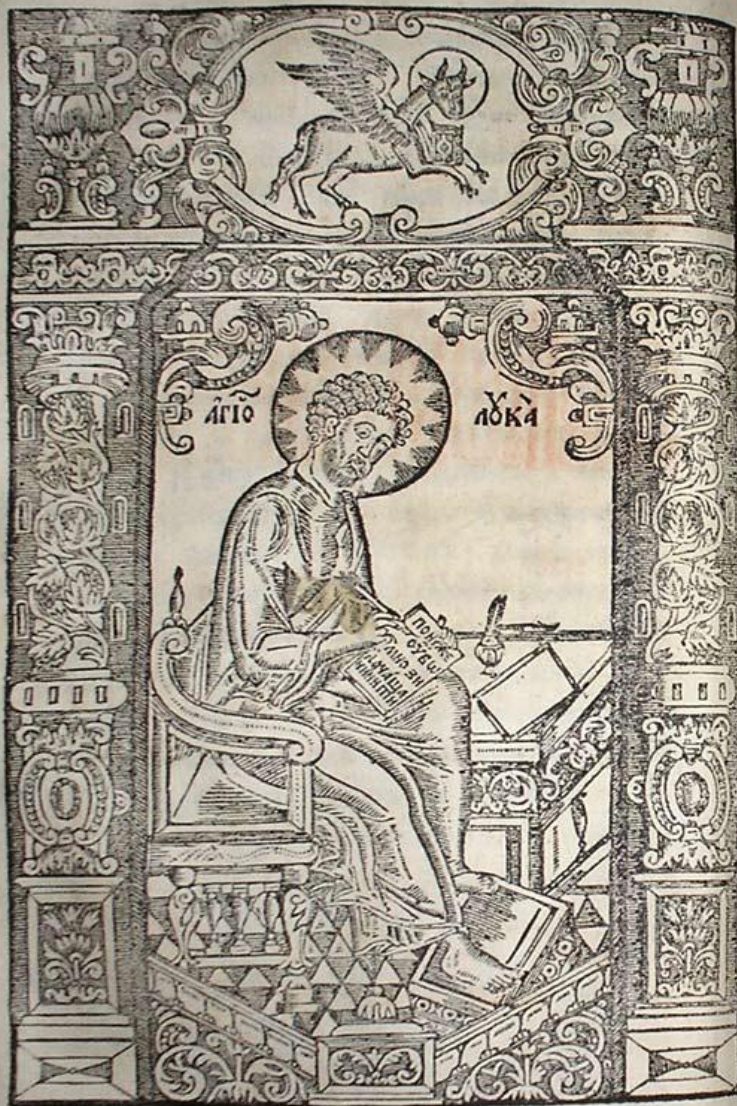 а҆гі̑о лꙋка̀
ПОНЕЖЕ
ОУБѠ
МНО ЗИ
НАЧАША
ЧИНИТИ